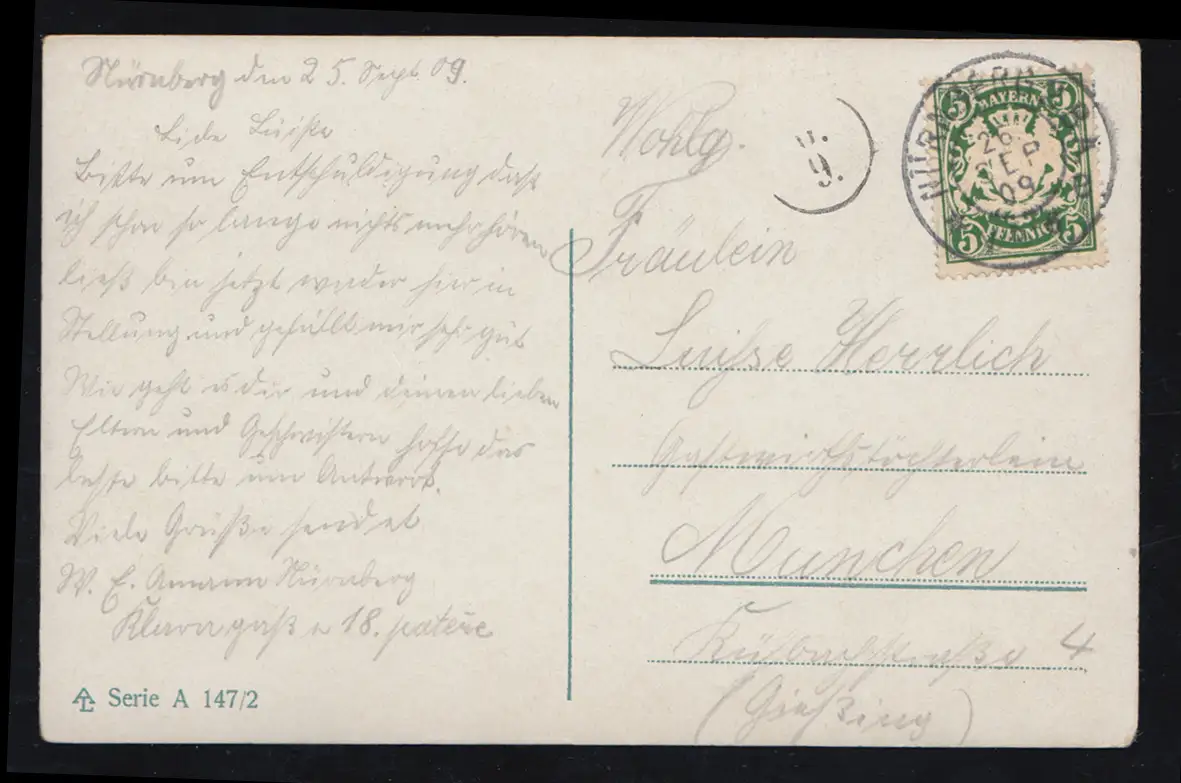 Nürnberg den 25. Sept 09.
Bitte um Entschuldigung daß
ich schon so lange nichts mehr hören
ließ bin jetzt wieder hier in
Stellung und gefällt mir sehr gut
Wie geht es dir und deinen lieben
Eltern und Geschwistern hoffe das
beste bitte um Antwort.
Viele Grüße sendet
W. E. Amann Nürnberg
18.
Serie A 147/2
Wohlg.
Fräulein
Luise Herrlich
Gastwirthstöchterlein
Munchen
Kühbachstraße 4
(Gießing)
9.
NÜRNBERG
26
SEP
09
5 BAYERN 5
5 PFENNIG 5